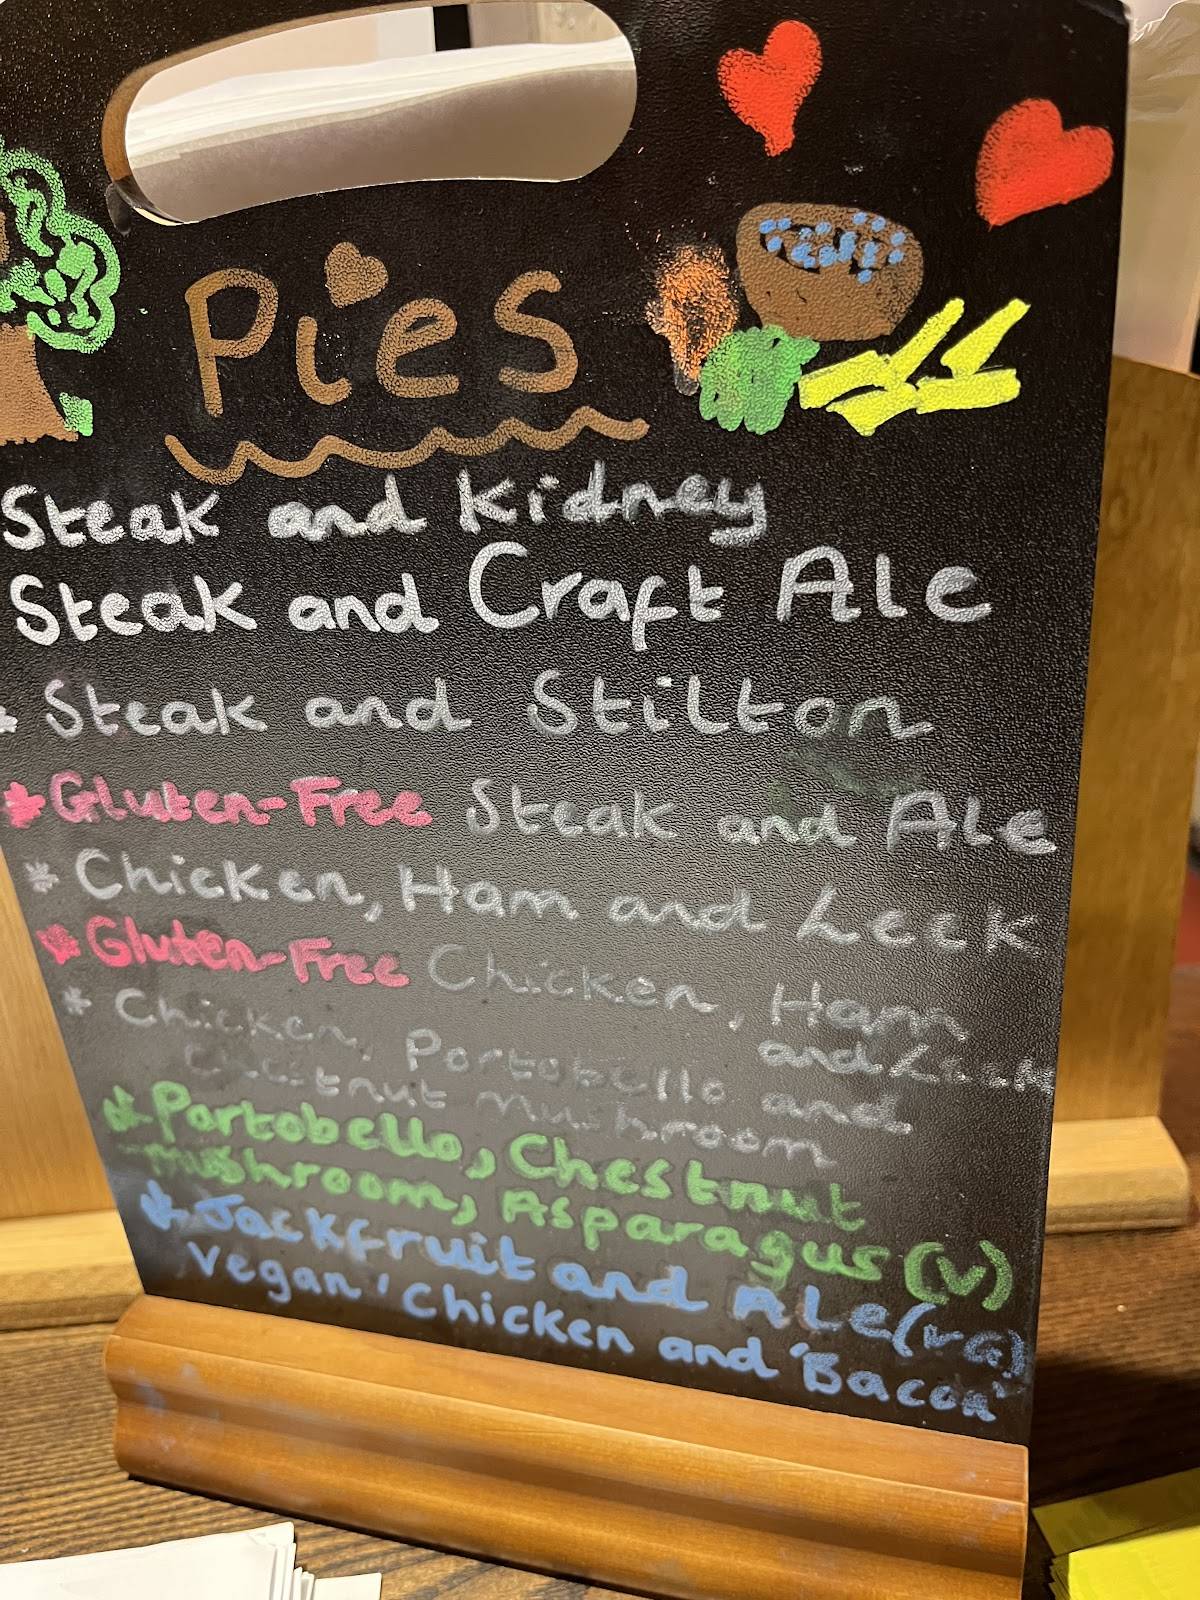 Pies
Steak and Kidney
Steak and Craft Ale
* Steak and Stilton
* Gluten-Free Steak and Ale
* Chicken, Ham and Leek
* Gluten-Free Chicken, Ham
and Leek
* Chicken, Portobello and
Chestnut mushroom
* Portobello, Chestnut
mushroom, Asparagus (v)
* Jackfruit and Ale (VG)
Vegan 'Chicken and 'Bacon'